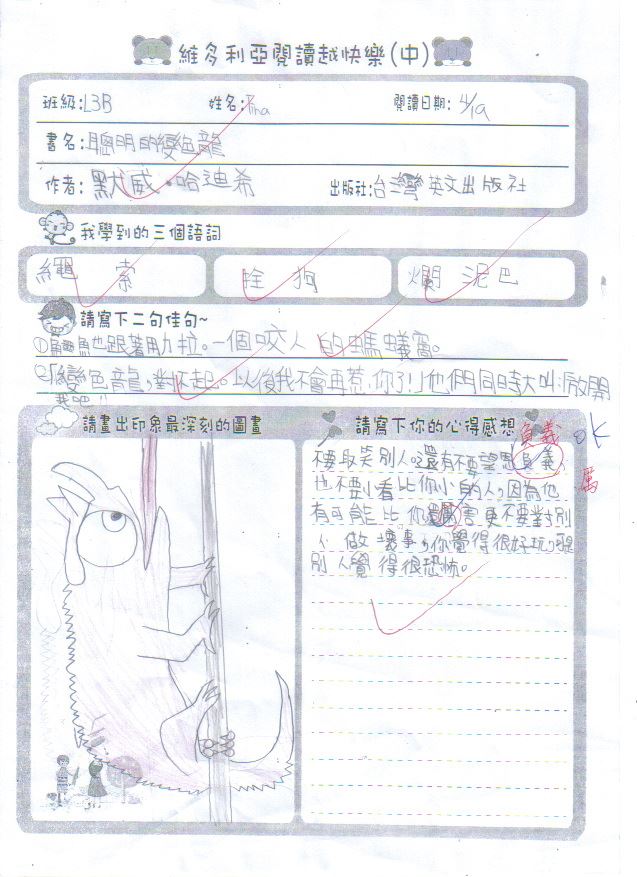 維多利亞閱讀越快樂(中)
班級:L3B 姓名:Tina 閱讀日期: 4/19
書名:聰明的變色龍
作者:默威·哈迪希 出版社:台灣英文出版社
我學到的三個語詞
繩索 拴狗 爛泥巴
請寫下二句佳句~
①鱷魚也跟著用力拉。一個咬人的螞蟻窩。
②「變色龍,對不起。以後我不會再惹你了!」他們同時大叫:放開
我吧!!
請畫出印象最深刻的圖畫 請寫下你的心得感想
負義 OK
不要取笑別人。還有不要望恩負義,
也不要小看比你小的人,因為他 厲
有可能比你還害更不要對別
人做壞事,你覺得很好玩,可是
別人覺得很恐怖。